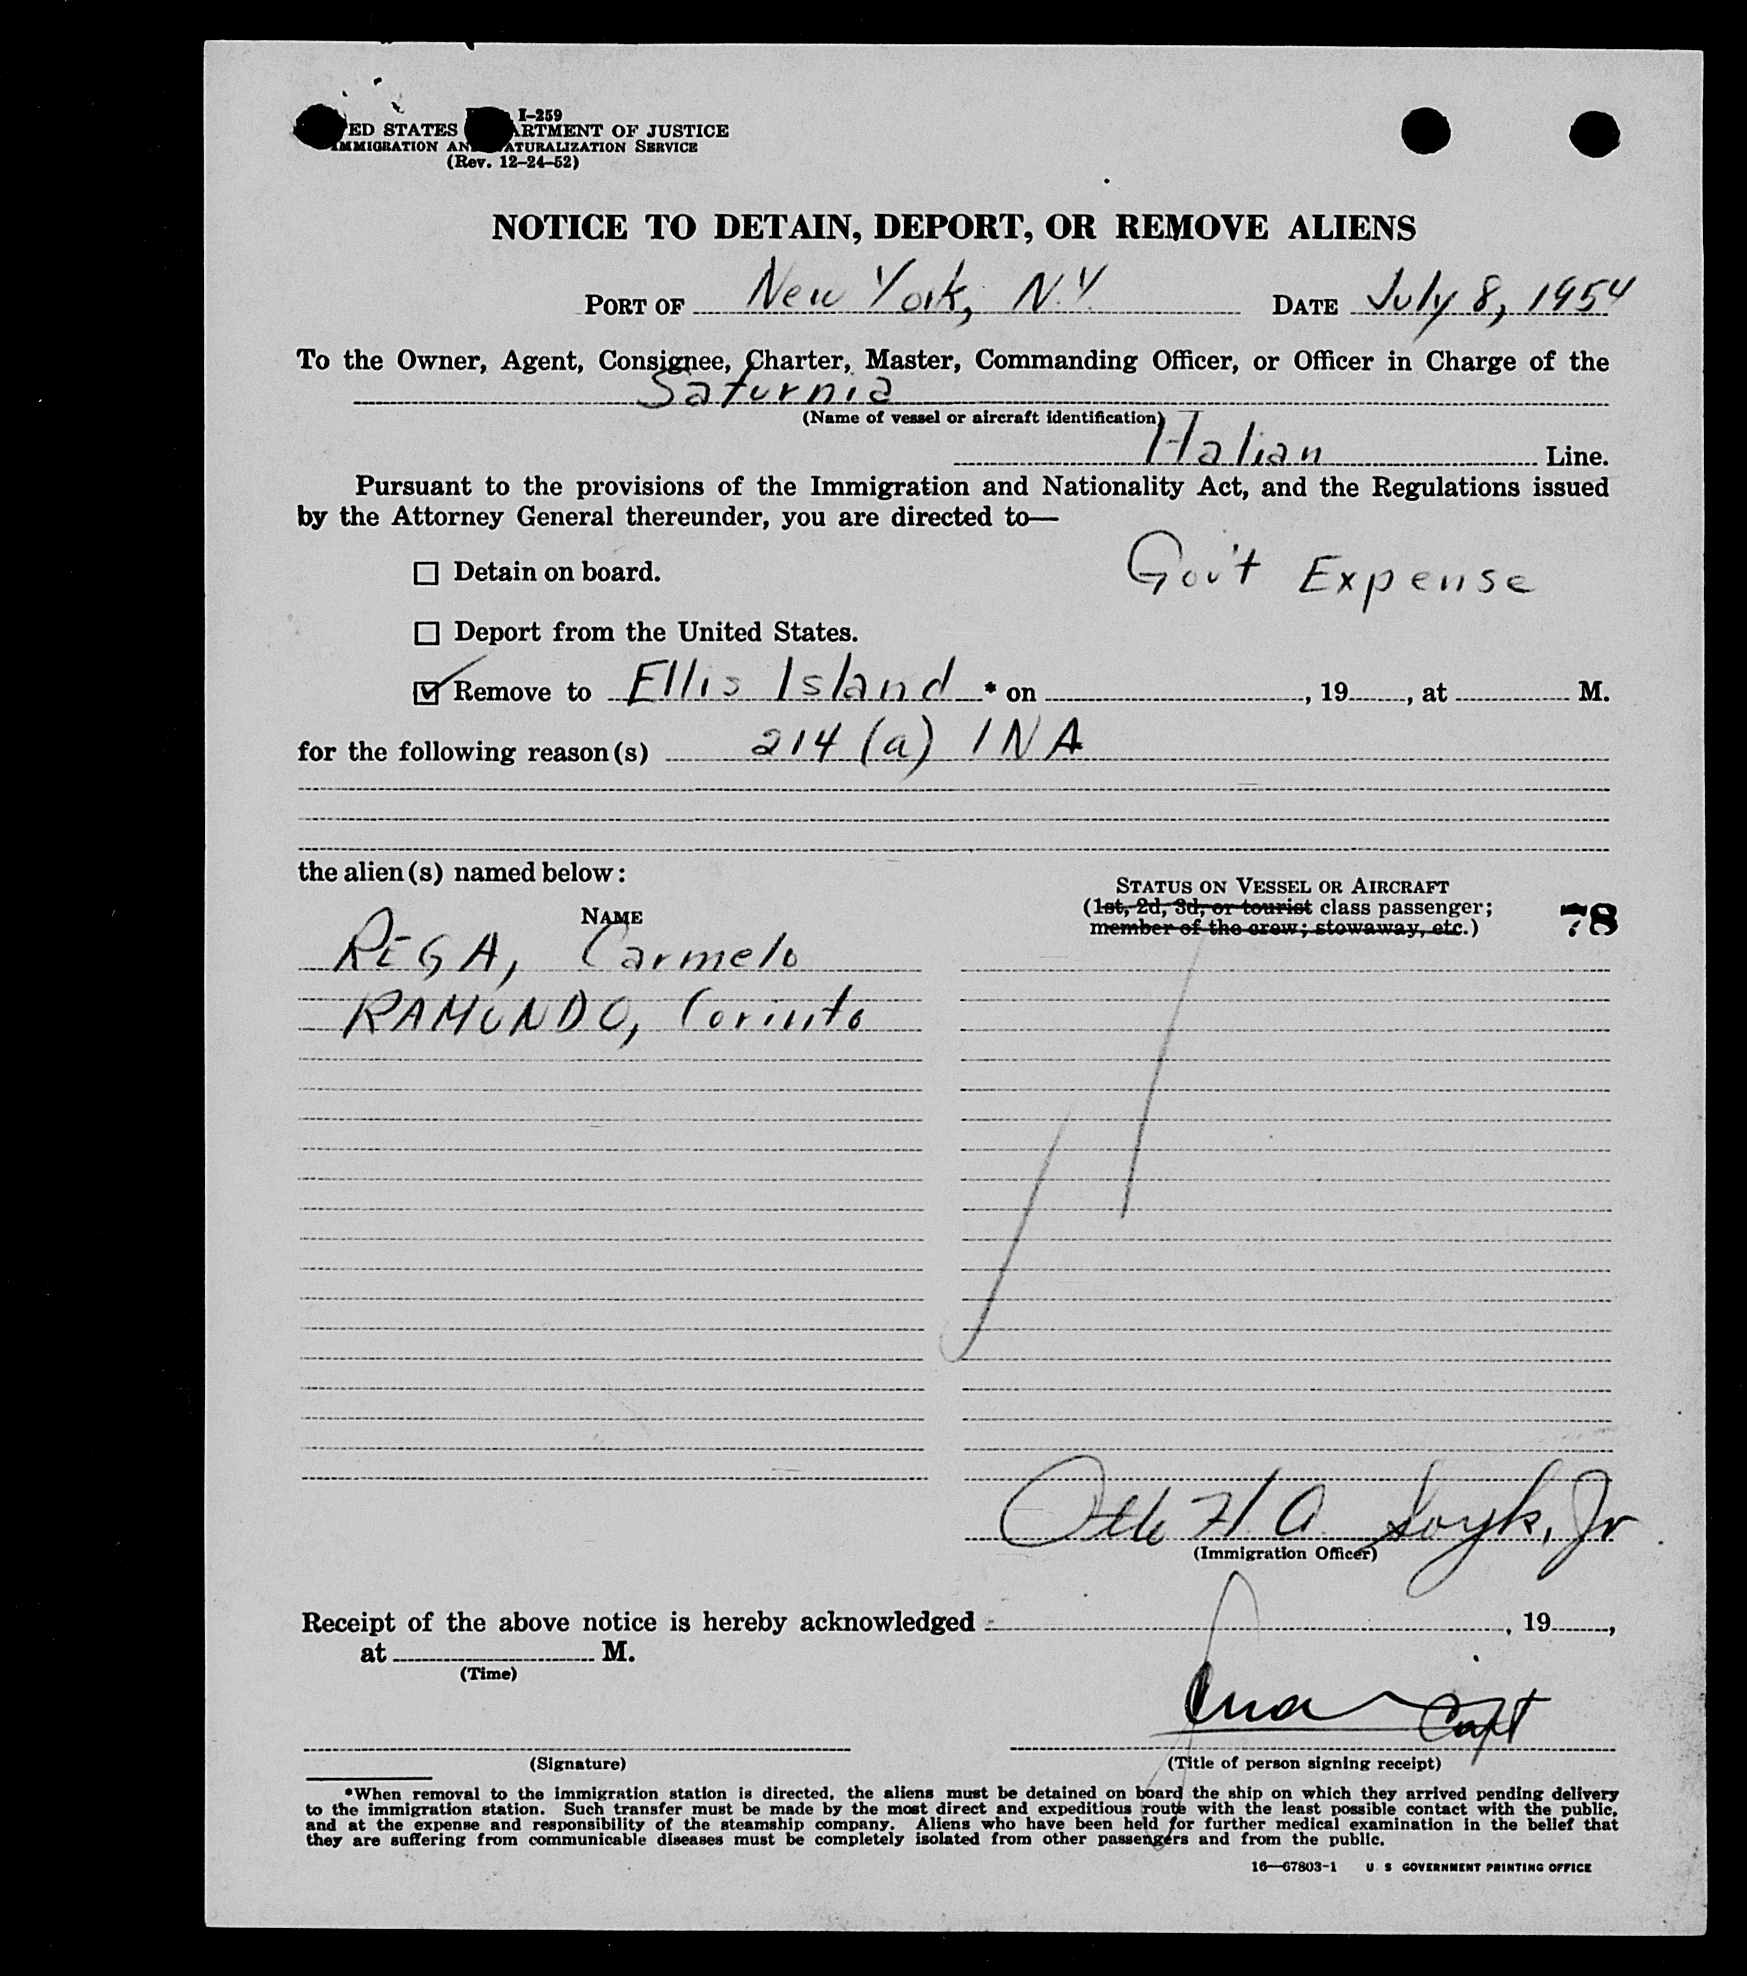 I-259
ED STATES ARTMENT OF JUSTICE
IMMIGRATION AN ATURALIZATION SERVICE
(Rev. 12-24-52)
NOTICE TO DETAIN, DEPORT, OR REMOVE ALIENS
PORT OF New York, N.Y. DATE July 8, 1954
To the Owner, Agent, Consignee, Charter, Master, Commanding Officer, or Officer in Charge of the
Saturnia
(Name of vessel or aircraft identification)
Italian Line.
Pursuant to the provisions of the Immigration and Nationality Act, and the Regulations issued
by the Attorney General thereunder, you are directed to—
☐ Detain on board. Gov't Expense
☐ Deport from the United States.
☑ Remove to Ellis Island * on , 19 , at M.
for the following reason(s) 214 (a) INA
the alien(s) named below:
STATUS ON VESSEL OR AIRCRAFT
NAME (1st, 2d, 3d, or tourist class passenger; 78
member of the crew; stowaway, etc.)
REGA, Carmelo
RAMUNDO, Corinto
Otto H. A. Soyk, Jr
(Immigration Officer)
Receipt of the above notice is hereby acknowledged , 19 ,
at M.
(Time)
Capt
(Signature) (Title of person signing receipt)
*When removal to the immigration station is directed, the aliens must be detained on board the ship on which they arrived pending delivery
to the immigration station. Such transfer must be made by the most direct and expeditious route with the least possible contact with the public,
and at the expense and responsibility of the steamship company. Aliens who have been held for further medical examination in the belief that
they are suffering from communicable diseases must be completely isolated from other passengers and from the public.
16—67803-1 U S GOVERNMENT PRINTING OFFICE